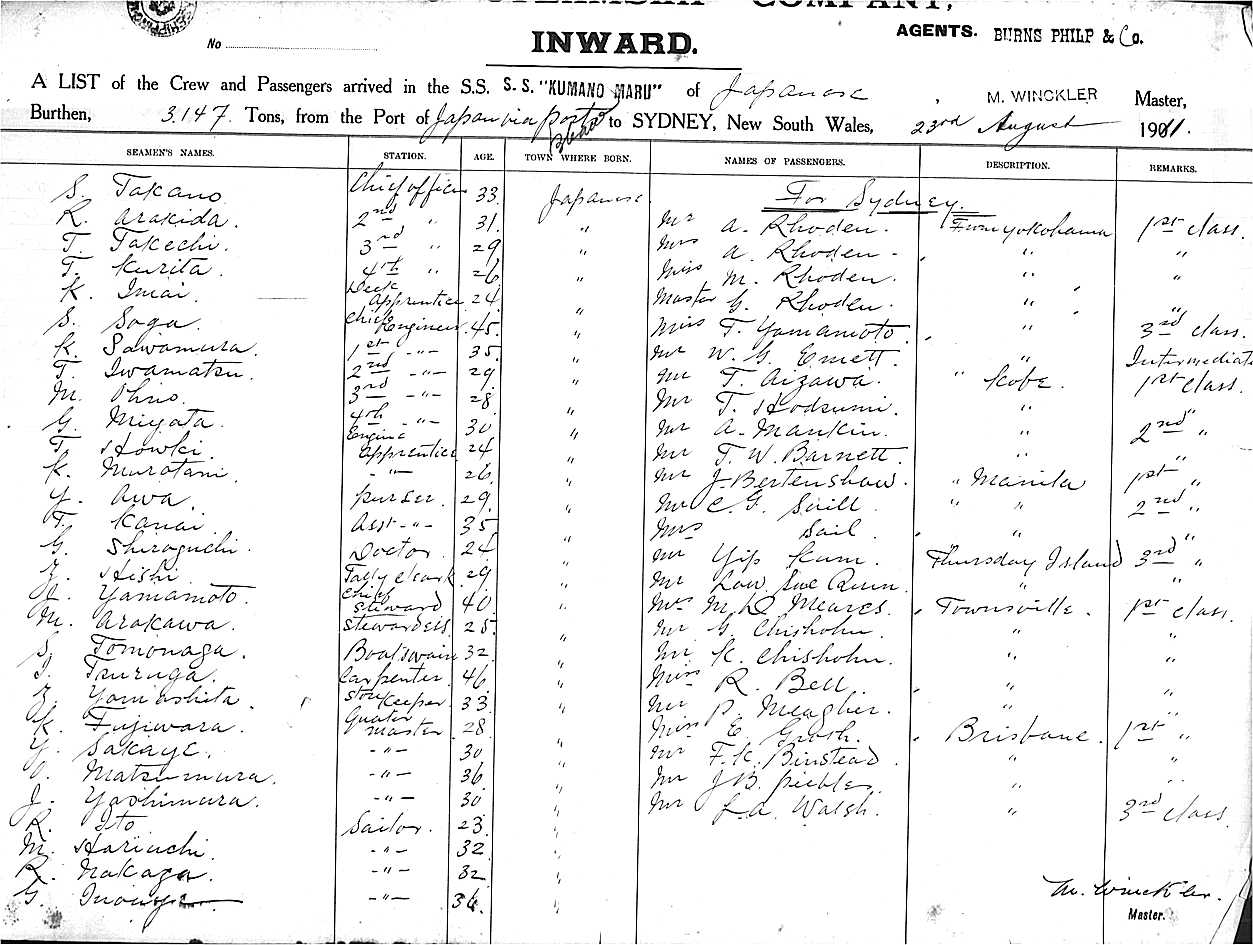 COMPANY,
No
INWARD.
AGENTS. BURNS PHILP & Co.
A LIST of the Crew and Passengers arrived in the S.S. S.S. "KUMANO MARU" of Japanese, M. WINCKLER Master,
Burthen, 3147 Tons, from the Port of Japan via ports to SYDNEY, New South Wales, 23rd August 1911.
SEAMEN'S NAMES. STATION. AGE. TOWN WHERE BORN. NAMES OF PASSENGERS. DESCRIPTION. REMARKS.
For Sydney.
S. Takano Chief officer 33 Japanese
R. Arakida. 2nd " 31. " Mr A. Rhoden. From Yokohama 1st class.
T. Takechi. 3rd " 29 " Mrs A. Rhoden. " "
T. Kurita. 4th " 26 " Miss M. Rhoden. " "
K. Imai. Deck Apprentice 24 " Master G. Rhoden. " "
S. Soga. Chief Engineer 45. " Miss T. Yamamoto. " 3rd class.
K. Sawamura. 1st -"- 35. " Mr W. G. Emett. " Intermediate
T. Iwamatsu. 2nd -"- 29 " Mr T. Aizawa. " Kobe. 1st class.
M. Ohno. 3rd -"- 28 " Mr T. Hodsumi. " "
G. Miyata. 4th -"- 30 " Mr A. Mankin. " 2nd "
T. Howki. Engine Apprentice 24 " Mr T. W. Barnett. " "
K. Murotani. -"- 26. " Mr J. Bertenshaw. " Manila 1st "
Y. Awa. purser. 29. " Mr C. G. Saill " " 2nd "
T. Kanai Asst -"- 35 " Mrs Sail. " "
G. Shiroguchi. Doctor 24 " Mr Yip Kam. Thursday Island 3rd "
Hishi. Tally Clerk 29 " Mr Low Sue Quin. " "
Yamamoto. Chief Steward 40 " M. D. Meares. Townsville. 1st class.
M. Arakawa. Stewardess 25. " Mr G. Chisholm. " "
S. Tomonaga. Boatswain 32 " Mr K. Chisholm. " "
Tsuruga. Carpenter. 46 " Miss R. Bell " "
Yamashita. Store Keeper. 33 " Mr P. Meagher. " "
K. Fujiwara. Quater master. 28 " Miss E. Brisbane. 1st "
Y. Sakaye. -"- 30 " Mr F. K. Binstead. " "
Matsumura. -"- 36 " Mr J. B. Peebles. " "
J. Yoshimura. -"- 30 " Mr L. A. Walsh. " 3rd class.
R. Ito Sailor. 23. "
M. Horiuchi. -"- 32 "
R. Nakaga. -"- 32 "
G. Inouye -"- 36. "
M. Winckler.
Master.